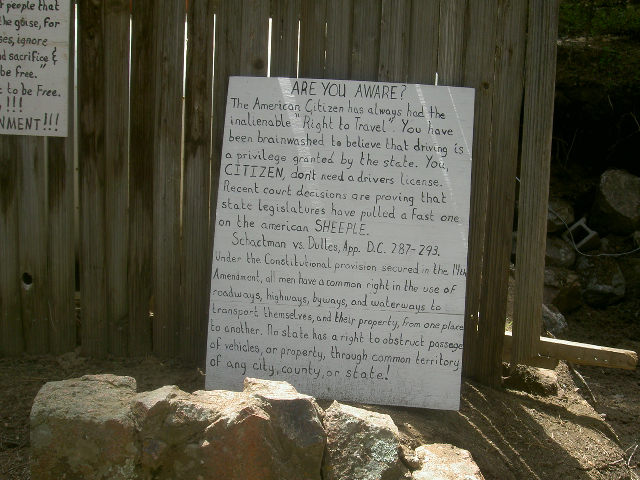 r people that
the goise, for
ses, ignore
nd sacrifice &
be free.
t to be Free.
!!!
NMENT!!!
ARE YOU AWARE?
The American Citizen has always had the
inalienable "Right to Travel". You have
been brainwashed to believe that driving is
a privilege granted by the state. You,
CITIZEN, don't need a drivers license.
Recent court decisions are proving that
state legislatures have pulled a fast one
on the american SHEEPLE.
Schactman vs. Dulles, App. D.C. 287-293.
Under the Constitutional provision secured in the 14th
Amendment, all men have a common right in the use of
roadways, highways, byways, and waterways to
transport themselves, and their property, from one place
to another. No state has a right to obstruct passage
of vehicles, or property, through common territory
of any city, county, or state!